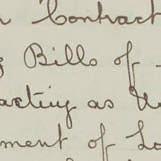 Contract
Bills of
acting as
ment of